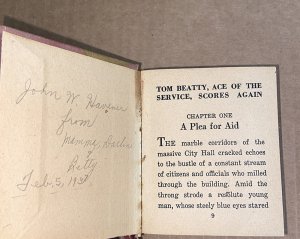 John W. Havener
from
Mamma, Pauline
Betty
Feb. 5, 193
TOM BEATTY, ACE OF THE
SERVICE, SCORES AGAIN
CHAPTER ONE
A Plea for Aid
THE marble corridors of the
massive City Hall cracked echoes
to the bustle of a constant stream
of citizens and officials who milled
through the building. Amid the
throng strode a resolute young
man, whose steely blue eyes stared
9